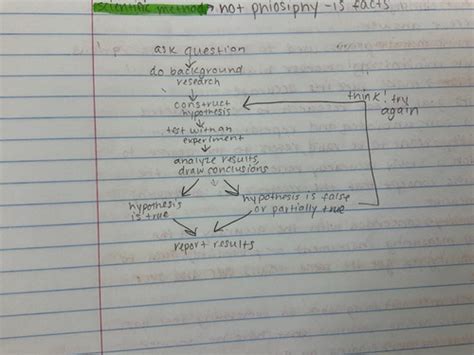 scientific method → not phiosiphy - is facts
ask question
do background
research
construct
hypothesis
think! try
again
test with an
experiment
analyze results,
draw conclusions
hypothesis
is true
hypothesis is false
or partially true
report results